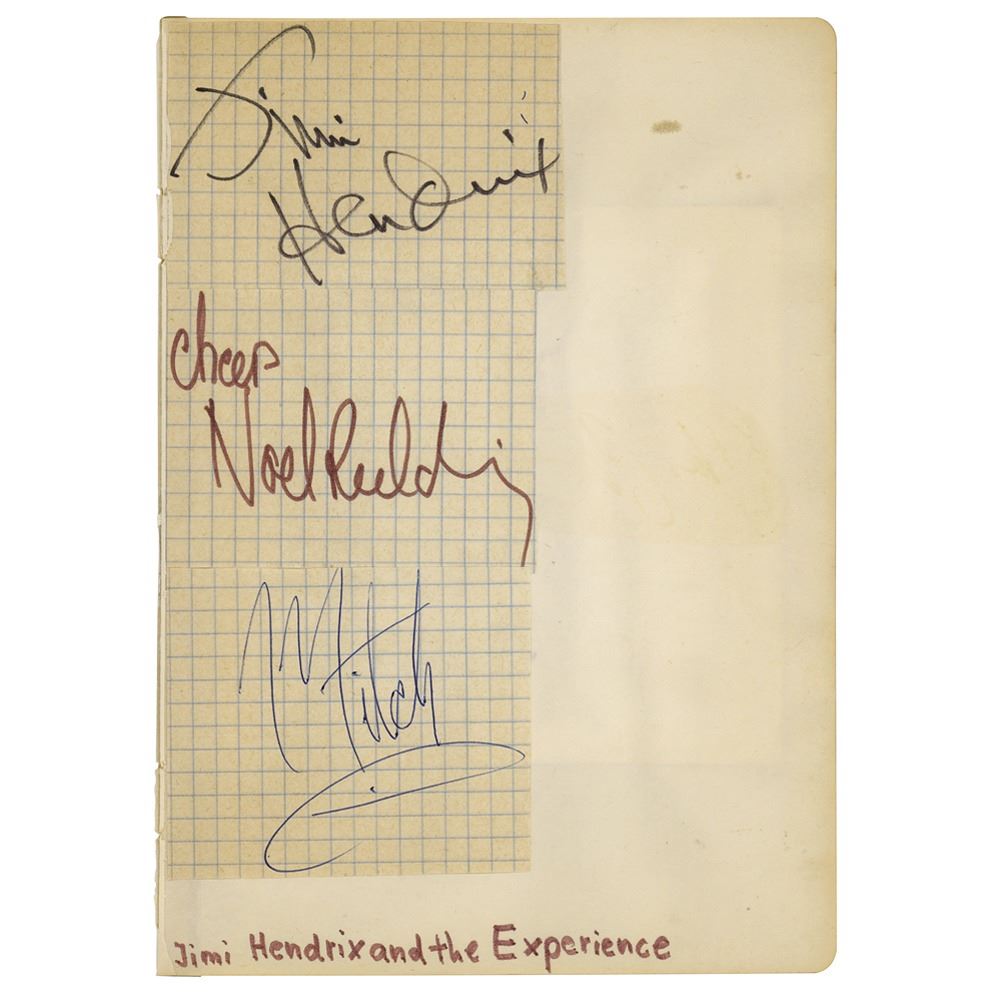 Jimi
Hendrix
cheers
Noel Redding
Mitch
Jimi Hendrix and the Experience